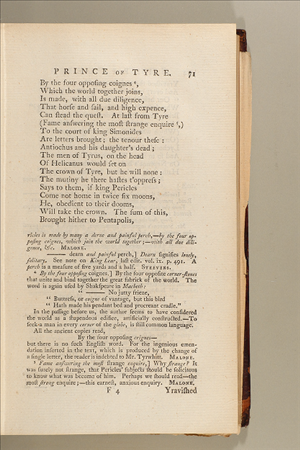 PRINCE OF TYRE. 71
By the four opposing coignes⁸,
Which the world together joins,
Is made, with all due diligence,
That horse and sail, and high expence,
Can stead the quest. At last from Tyre
(Fame answering the most strange enquire⁹,)
To the court of king Simonides
Are letters brought; the tenour these:
Antiochus and his daughter's dead;
The men of Tyrus, on the head
Of Helicanus would set on
The crown of Tyre, but he will none:
The mutiny he there hastes t'oppress;
Says to them, if king Pericles
Come not home in twice six moons,
He, obedient to their dooms,
Will take the crown. The sum of this,
Brought hither to Pentapolis,
ricles is made by many a dern and painful perch,—by the four op-
posing coignes, which join the world together;—with all due dili-
gence, &c. MALONE.
——— dearn and painful perch,] Dearn signifies lonely,
solitary. See note on King Lear, last edit. vol. ix. p. 491. A
perch is a measure of five yards and a half. STEEVENS.
⁸ By the four opposing coignes,] By the four opposite corner-stones
that unite and bind together the great fabrick of the world. The
word is again used by Shakspeare in Macbeth:
" ——— No jutty frieze,
" Buttress, or coigne of vantage, but this bird
" Hath made his pendent bed and procreant cradle."
In the passage before us, the author seems to have considered
the world as a stupendous edifice, artificially constructed.—To
seek a man in every corner of the globe, is still common language.
All the ancient copies read,
By the four opposing crignes—
but there is no such English word. For the ingenious emen-
dation inserted in the text, which is produced by the change of
a single letter, the reader is indebted to Mr. Tyrwhitt. MALONE.
⁹ Fame answering the most strange enquire,] Why strange? It
was surely not strange, that Pericles' subjects should be solicitous
to know what was become of him. Perhaps we should read—the
most strong enquire;—this earnest, anxious enquiry. MALONE.
F 4 Yravished